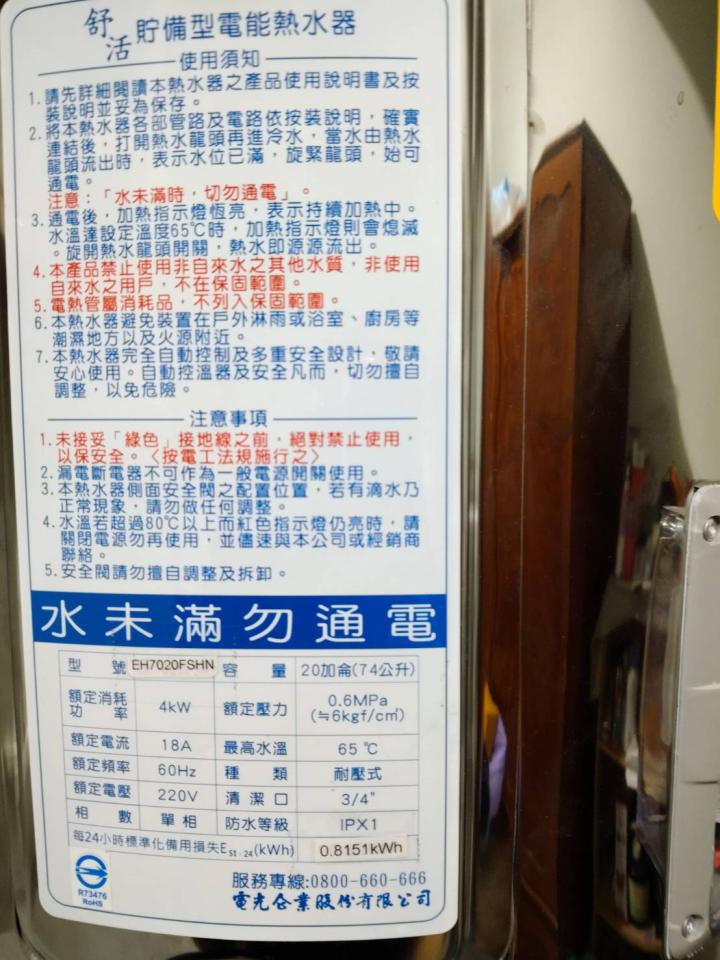 舒活 貯備型電能熱水器
使用須知
1.請先詳細閱讀本熱水器之產品使用說明書及按
裝說明並妥為保存。
2.將本熱水器各部管路及電路依按裝說明，確實
連結後，打開熱水龍頭再進冷水，當水由熱水
龍頭流出時，表示水位已滿，旋緊龍頭，始可
通電。
注意：「水未滿時，切勿通電」。
3.通電後，加熱指示燈恆亮，表示持續加熱中。
水溫達設定溫度65℃時，加熱指示燈則會熄滅
。旋開熱水龍頭開關，熱水即源源流出。
4.本產品禁止使用非自來水之其他水質，非使用
自來水之用戶，不在保固範圍。
5.電熱管屬消耗品，不列入保固範圍。
6.本熱水器避免裝置在戶外淋雨或浴室、廚房等
潮濕地方以及火源附近。
7.本熱水器完全自動控制及多重安全設計，敬請
安心使用。自動控溫器及安全凡而，切勿擅自
調整，以免危險。
注意事項
1.未接妥「綠色」接地線之前，絕對禁止使用，
以保安全。〈按電工法規施行之〉
2.漏電斷電器不可作為一般電源開關使用。
3.本熱水器側面安全閥之配置位置，若有滴水乃
正常現象，請勿做任何調整。
4.水溫若超過80℃以上而紅色指示燈仍亮時，請
關閉電源勿再使用，並儘速與本公司或經銷商
聯絡。
5.安全閥請勿擅自調整及拆卸。
水未滿勿通電
型號 EH7020FSHN 容量 20加侖(74公升)
額定消耗功率 4kW 額定壓力 0.6MPa (≒6kgf/c㎡)
額定電流 18A 最高水溫 65℃
額定頻率 60Hz 種類 耐壓式
額定電壓 220V 清潔口 3/4"
相數 單相 防水等級 IPX1
每24小時標準化備用損失Est,24(kWh) 0.8151kWh
R73476
RoHS
服務專線:0800-660-666
電光企業股份有限公司